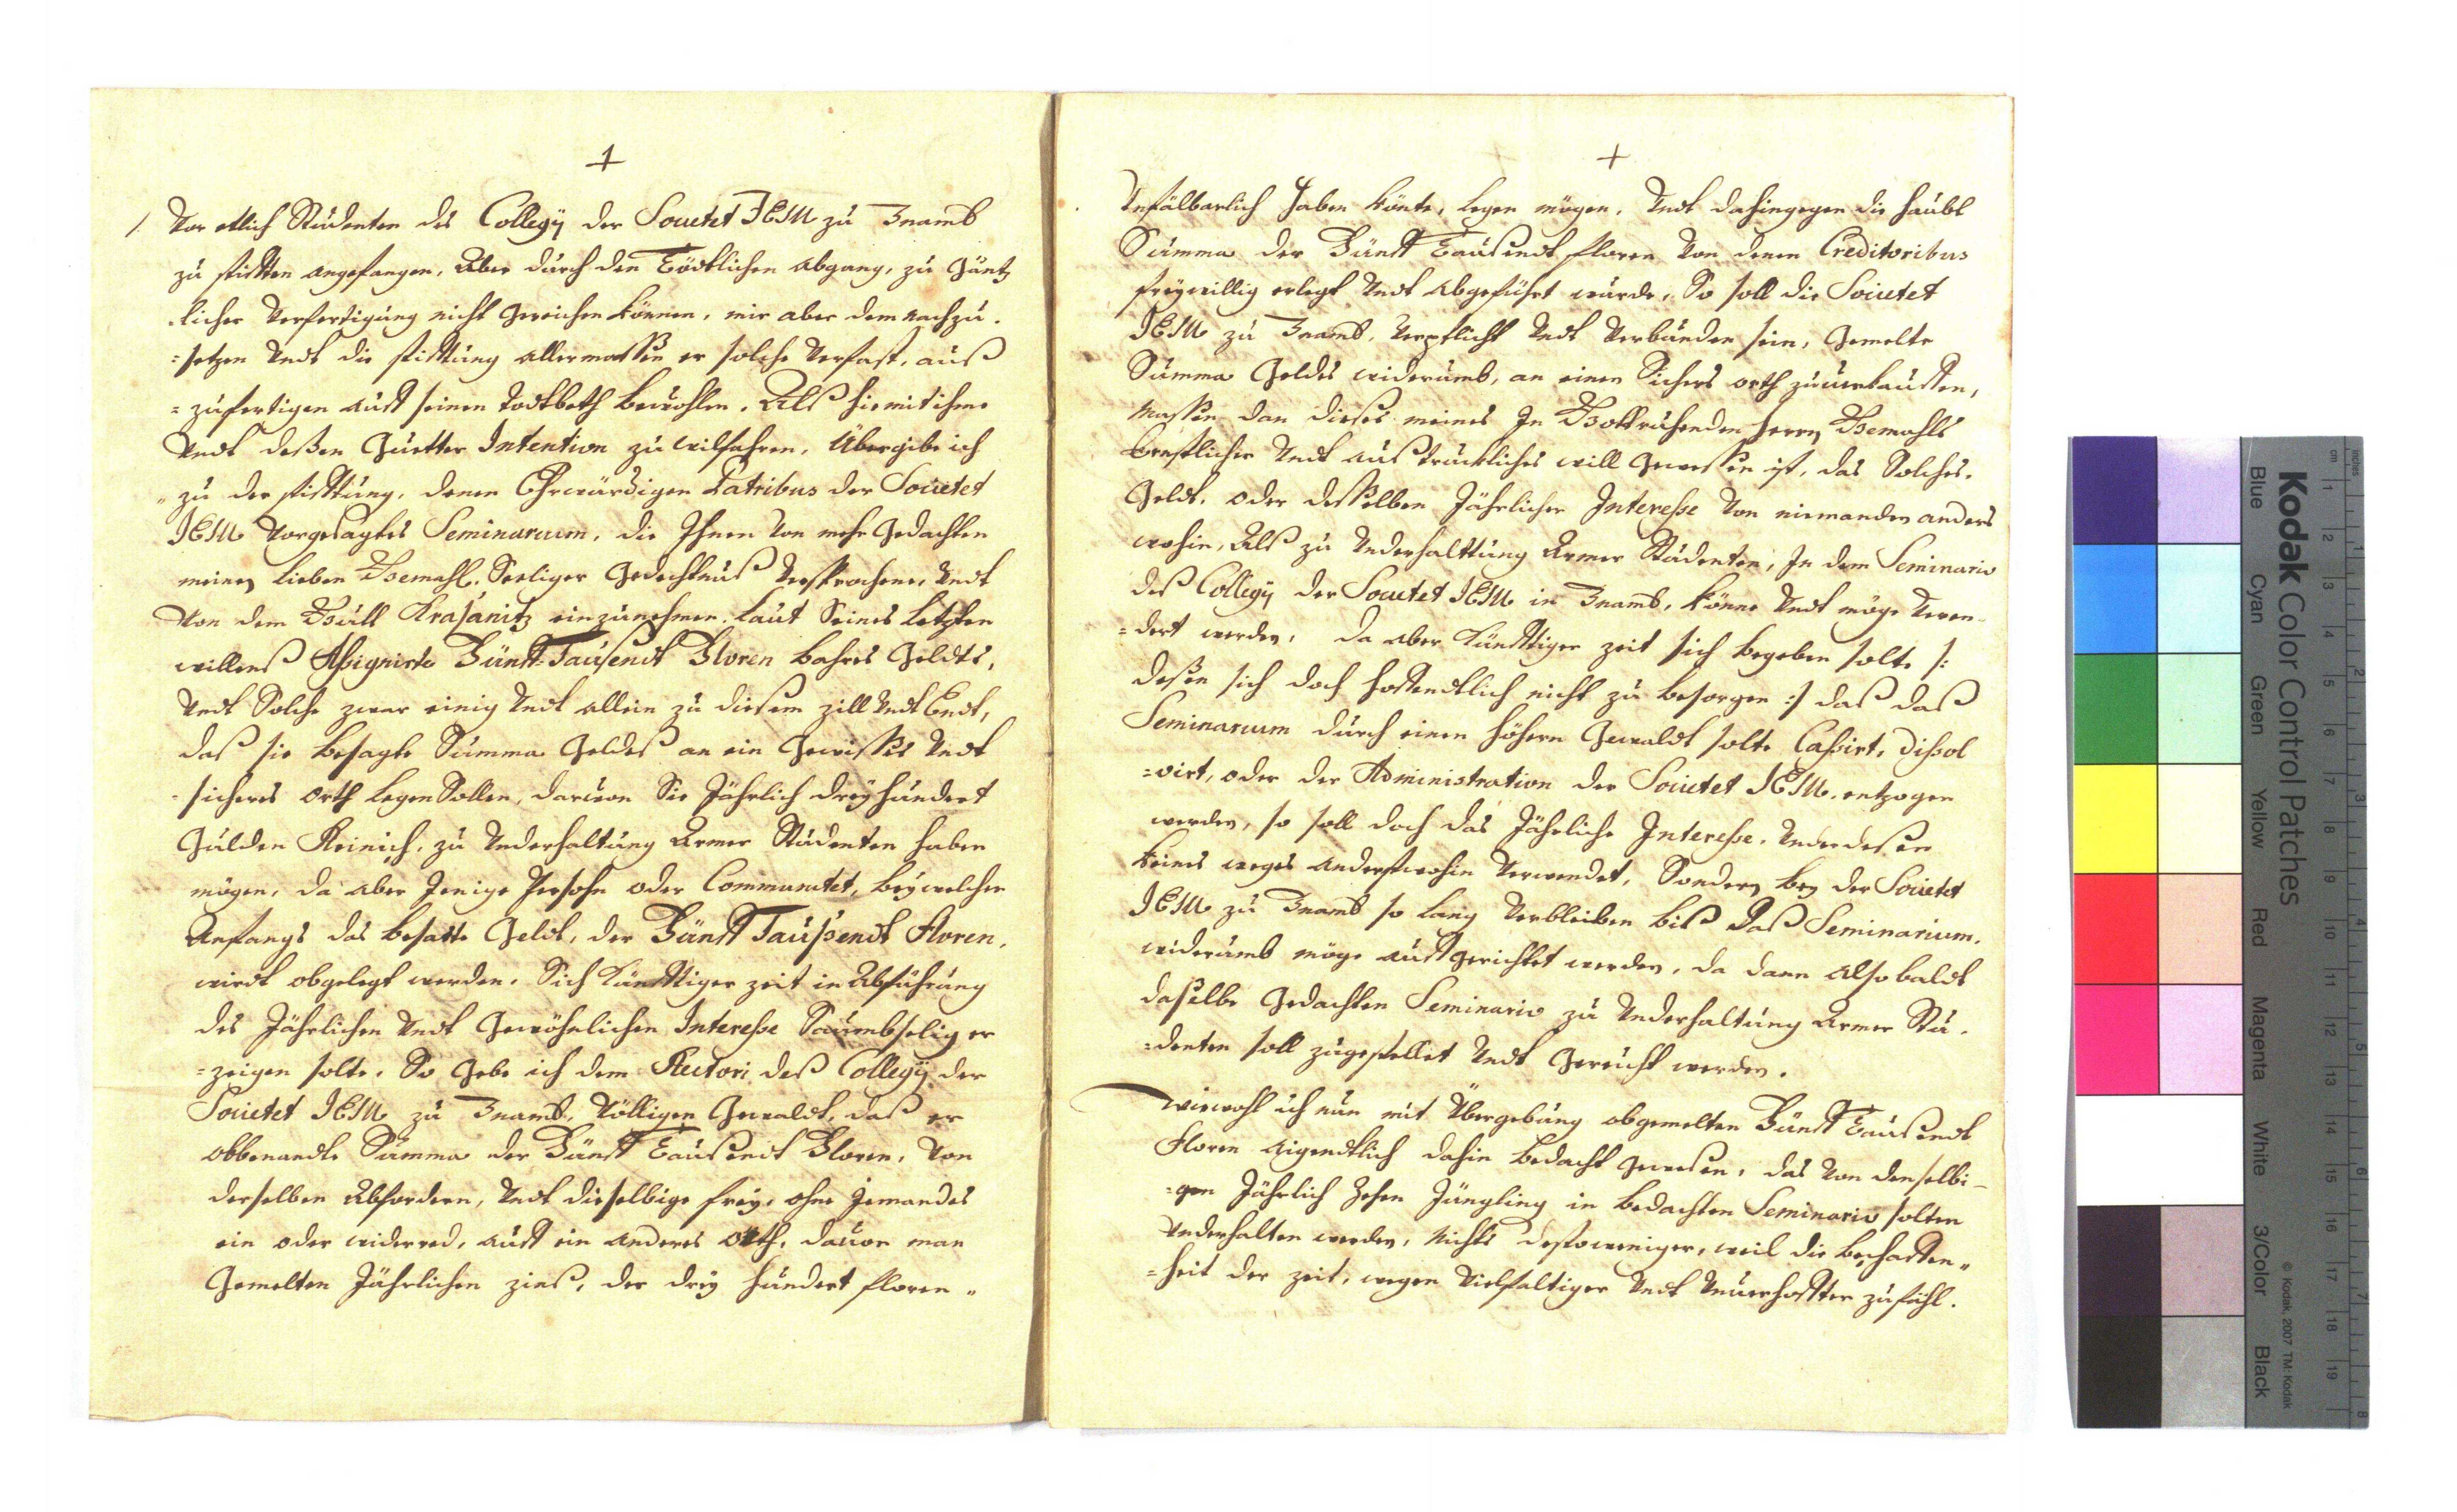 +
/. Vor etlich Studenten des Collegÿ der Societet JESU zu Znamb
zu stifften angefangen, Aber durch den Tödtlichen abgang, zu Gäntz
licher Verfertigung nicht Gereichen können, mir aber dem nachzu.
=setzen Undt die stifftung allermassen er solche Verfast, auß
=zufertigen auff seinen Todtbeth bevohlen. Alß hiemit ihme
Undt deßen Guetter Intention zu wilfahren, Übergibe ich
zu der stifftung, denen Ehrwürdigen Patribus der Societet
JESU Vorgesagtes Seminarium, die Ihnen Von mehr Gedachten
meinen lieben Gemahl Seeliger Gedechtnuß Versprochene, Undt
Von dem Guett Krasanitz einzunehmen, laut Seines Letzten
willenß Assignirte Fünff=Tausendt Floren bahres Geldts,
Undt Solche zwar einig Undt allein zu diesem zill Undt Endt,
daß sie besagte Summa Geldeß an ein Gewisses Undt
sicheres orth legen Sollen, darvon Sie Jährlich dreÿ hundert
Gulden Reinisch, zu Underhaltung Armer Studenten haben
mögen, da aber Jenige Persohn oder Communitet, beÿ welcher
Anfangs das besatte Geldt, der Fünff Taußendt Floren,
wirdt obgelegt werden, Sich Künfftiger zeit in Abführung
des Jährlichen Undt Gewöhnlichen Interesse Saumbselig er
=zeigen solte, So Gebe ich dem Rectori deß Collegÿ der
Societet JESU zu Znamb, Völligen Gewaldt, daß er
obbenandte Summa der Fünff Tausendt Floren, Von
derselben Abfordern, Undt dieselbige freÿ, ohne Jemandes
ein oder widerred, auff ein anderes orth, davon man
Gemelten Jährlichen zinß, der dreÿ hundert floren
+
Unfälbarlich haben könte, legen mögen. Undt dahingegen die haubt
Summa der Fünff Tausendt floren Von denen Creditoribus
freÿwillig erlegt Undt Abgeführt wurde, So soll die Societet
JESU zu Znamb, Verpflicht Undt Verbunden sein, Gemelte
Summa Geldes widerumb, an einen Sichers orth zuverkauffen,
Massen dan dieses meines In Gottruhenden Herrn Gemahls
Ernstlicher Undt außtruckliches will Gewessen ist, das Solches
Geldt, oder desselben Jährlicher Interesse Von niemanden anders
wohin, Alß zu Underhalttung Armer Studenten, In dem Seminario
deß Collegÿ der Societet JESU in Znamb, könne Undt möge Verwen
=dert werden, da aber Künfftiger zeit sich begeben solte /:
deßen sich doch hoffendtlich nicht zu besorgen :/ daß daß
Seminarium durch einen höhern Gewaldt solte Cassirt, dissol
=virt, oder der Administration der Societet JESU, entzogen
werden, so soll doch das Jährliche Interesse, Underdessen
keines weges anderstwohin Verwendet, Sondern beÿ der Societet
JESU zu Znamb so lang Verbleiben biß Daß Seminarium,
widerumb möge auffgerichtet werden, da dann also baldt
daselbe Gedachten Seminario zu Underhaltung Armer Stu.
=denten soll zugestellet Undt Gereicht werden.
Wiewohl ich nun mit Übergebung obgemelten Fünff Tausendt
Floren Aigendtlich dahin bedacht Gewesen, das Von denselbi-
=gen Jährlich Zehen Jüngling in bedachten Seminario solten
Underhalten werden, Nichts destoweniger, weil die beschaffen
=heit der zeit, wegen Vielfaltiger Undt Unverhoffter zufähl.
Kodak Color Control Patches
Blue Cyan Green Yellow Red Magenta White 3/Color Black
© Kodak, 2007 TM: Kodak
cm 1 2 3 4 5 6 7 8 9 10 11 12 13 14 15 16 17 18 19
inches 1 2 3 4 5 6 7 8